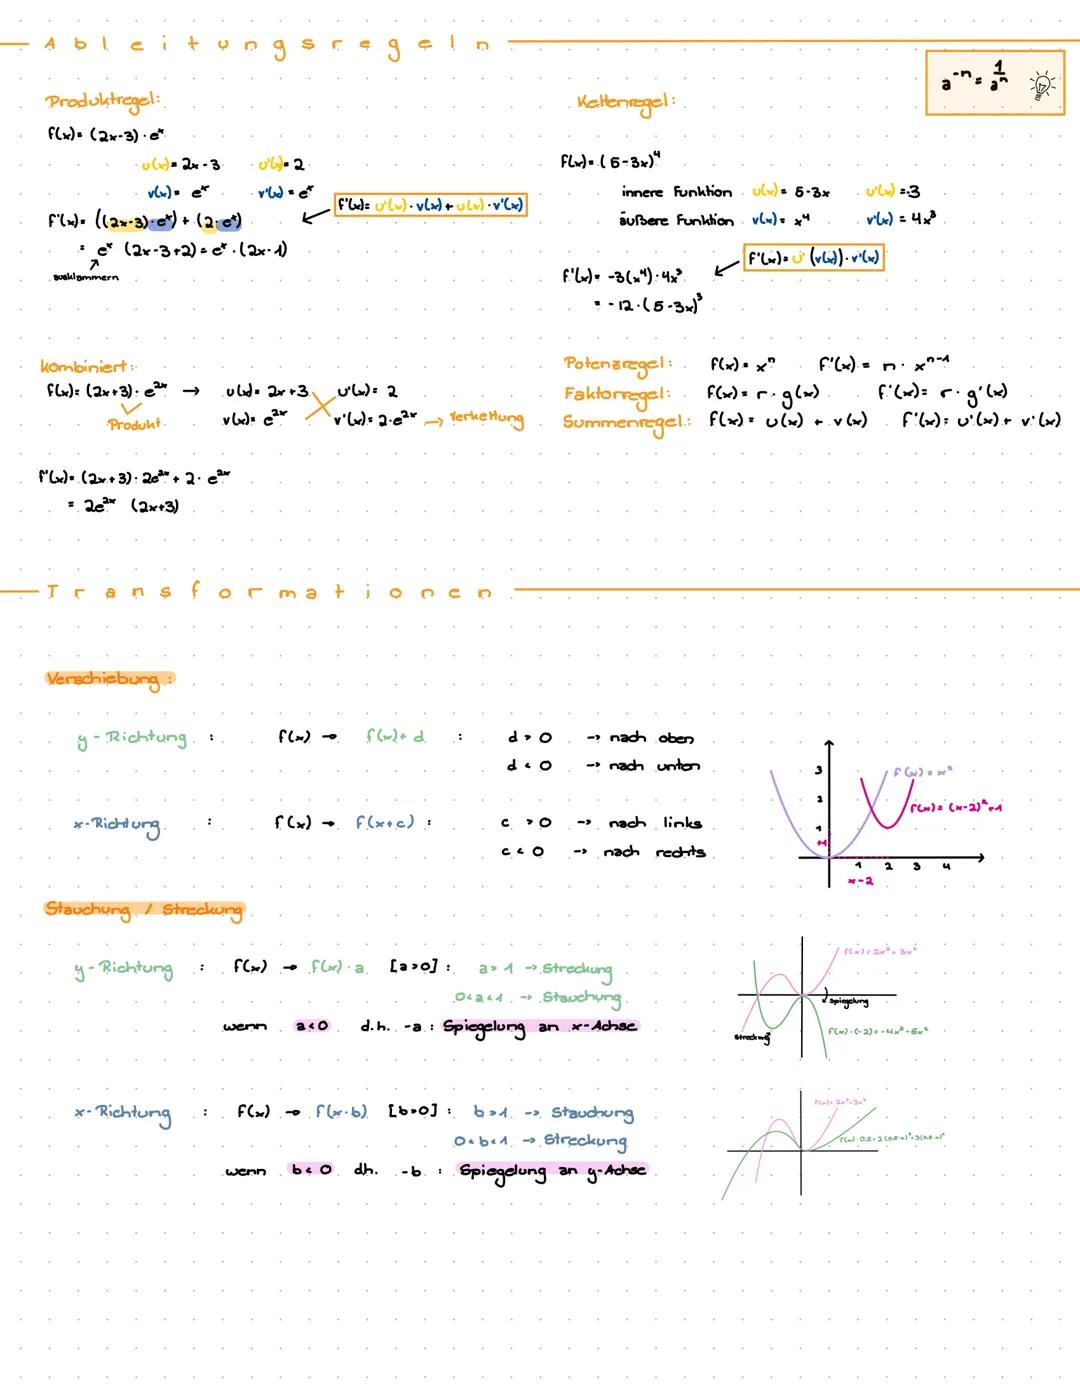 Ableitungsregeln
a⁻ⁿ = 1/aⁿ
Produktregel:
f(x) = (2x-3) · eˣ
u(x) = 2x-3 u'(x) = 2
v(x) = eˣ v'(x) = eˣ
f'(x) = u'(x) · v(x) + u(x) · v'(x)
f'(x) = ((2x-3) · eˣ) + (2 · eˣ)
= eˣ (2x-3+2) = eˣ · (2x-1)
ausklammern
Kettenregel:
f(x) = (5-3x)⁴
innere Funktion u(x) = 5-3x u'(x) = -3
äußere Funktion v(x) = x⁴ v'(x) = 4x³
f'(x) = u' (v(x)) · v'(x)
f'(x) = -3(x⁴) · 4x³
= -12 · (5-3x)³
kombiniert:
f(x) = (2x+3) · e²ˣ → u(x) = 2x+3 u'(x) = 2
Produkt v(x) = e²ˣ v'(x) = 2·e²ˣ → Verkettung
f'(x) = (2x+3) · 2e²ˣ + 2 · e²ˣ
= 2e²ˣ (2x+3)
Potenzregel: f(x) = xⁿ f'(x) = n · xⁿ⁻¹
Faktorregel: f(x) = r · g(x) f'(x) = r · g'(x)
Summenregel: f(x) = u(x) + v(x) f'(x) = u'(x) + v'(x)
Transformationen
Verschiebung:
y-Richtung : f(x) → f(x)+d : d > 0 -> nach oben
d < 0 -> nach unten
x-Richtung : f(x) → f(x+c) : c > 0 -> nach links
c < 0 -> nach rechts
f(x) = x²
f(x) = (x-2)²+1
3
2
1
+1
1 2 3 4
x-2
Stauchung / Streckung
y-Richtung : f(x) → f(x)·a [a>0] : a > 1 -> Streckung
0<a<1 -> Stauchung
wenn a<0 d.h. -a : Spiegelung an x-Achse
f(x) = 2x³+3x²
Spiegelung
f(x)·(-2) = -4x³-6x²
Streckung
x-Richtung : f(x) → f(x·b) [b>0] : b>1 -> Stauchung
0<b<1 -> Streckung
wenn b<0 dh. -b : Spiegelung an y-Achse
f(x) = 2x³+3x²
f(x)·0,5 = 2(0,5·x)³+3(0,5·x)²